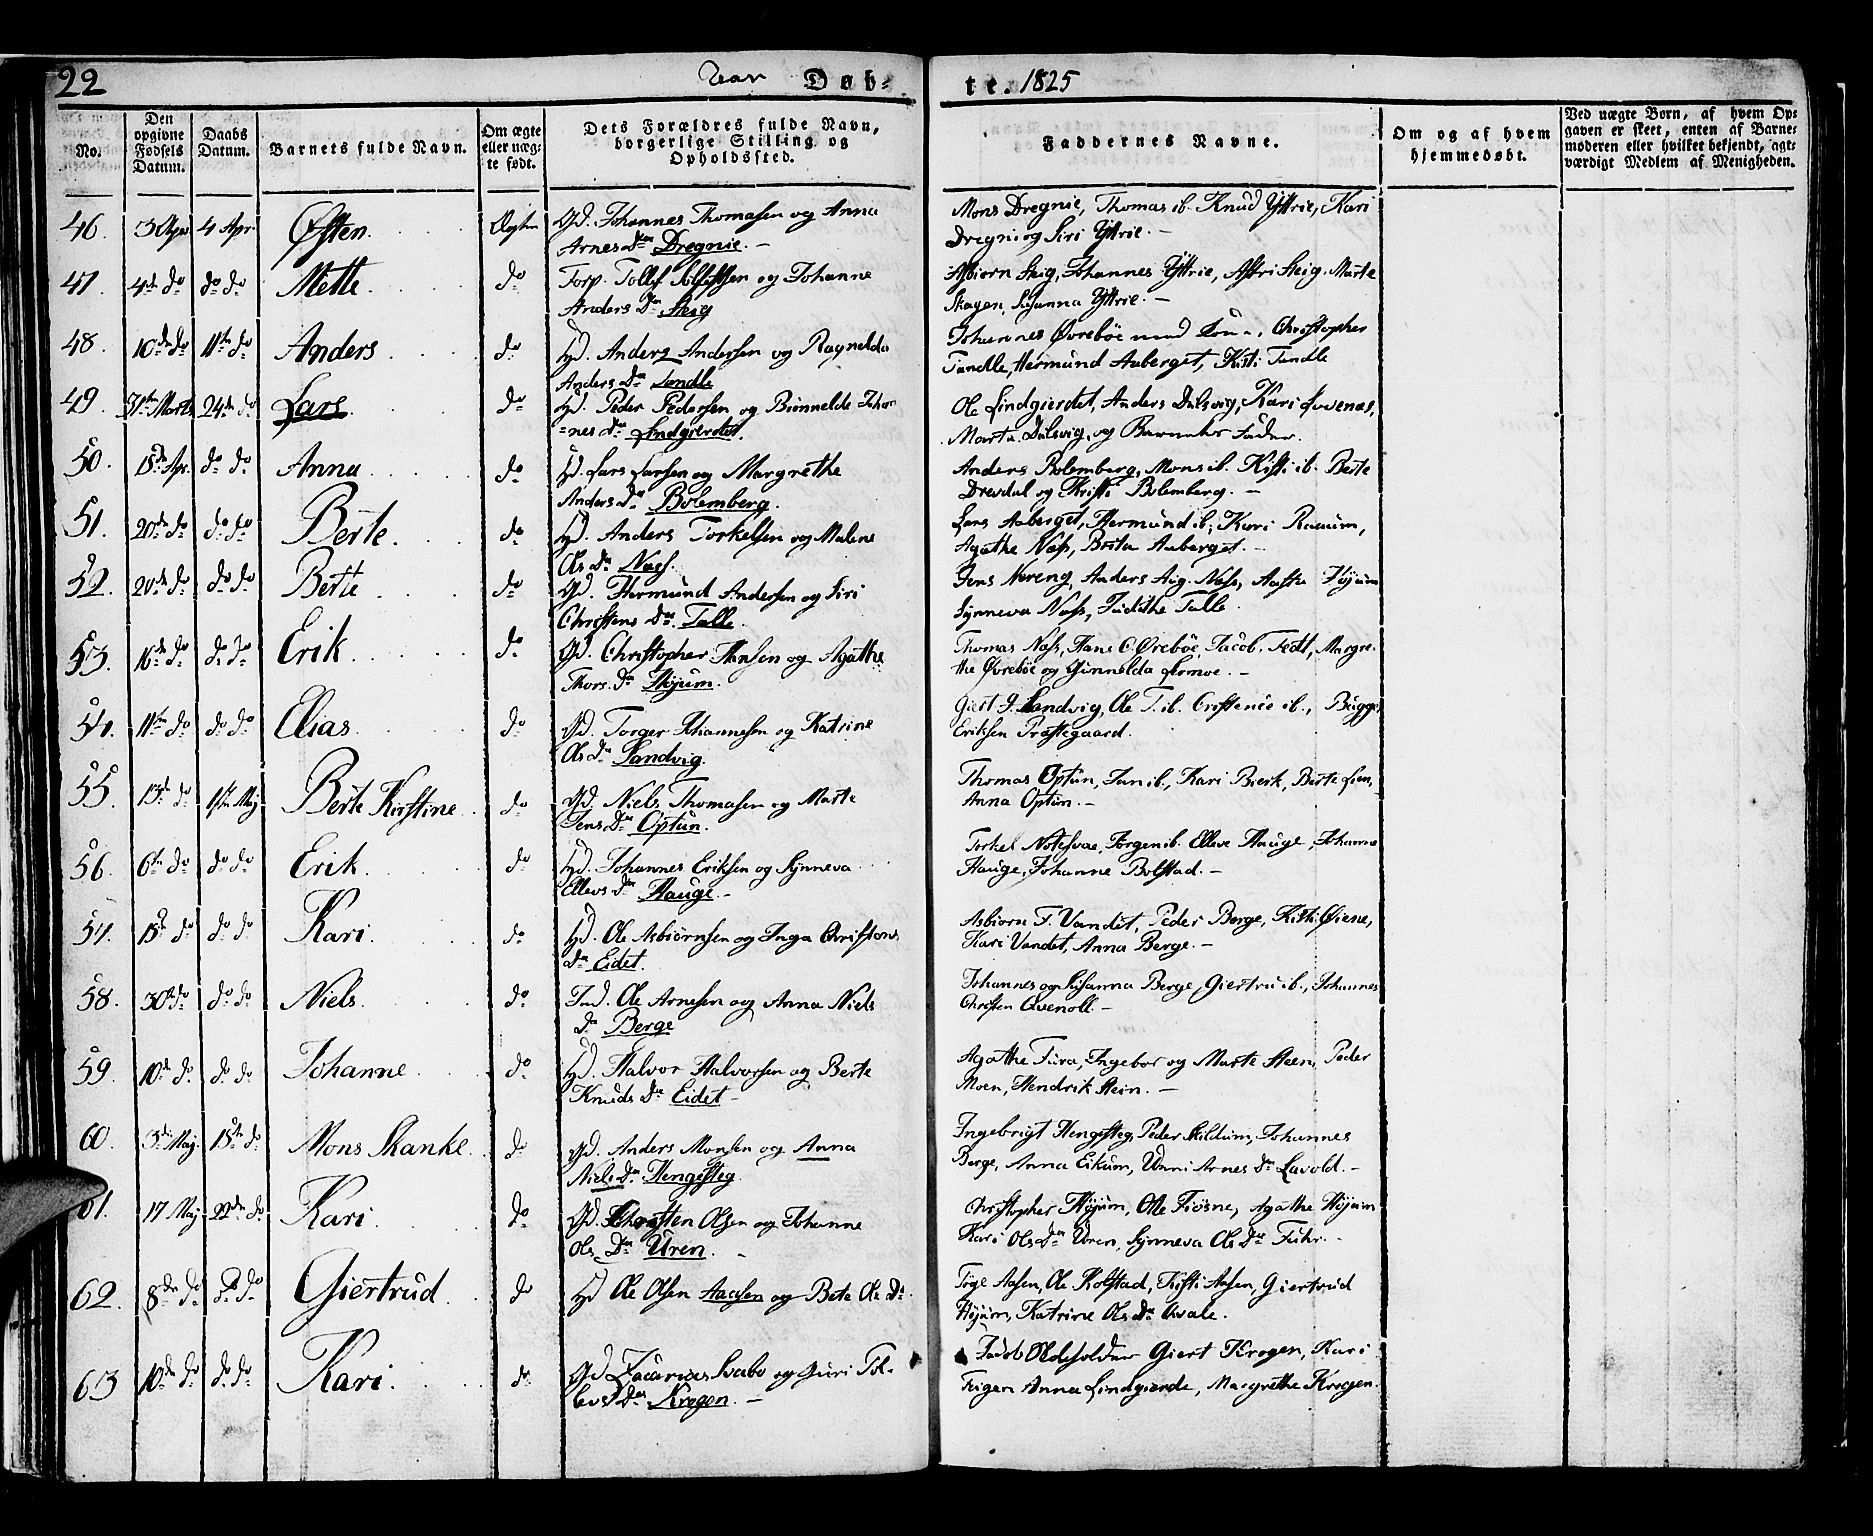 22
Aar Døb-
te. 1825
No.
Den opgivne Fødsels Datum.
Daabs Datum.
Barnets fulde Navn.
Om ægte eller uæg-te født.
Dets Forældres fulde Navn, borgerlige Stilling og Opholdssted.
Faddernes Navne.
Om og af hvem hjemmedøbt.
Ved uægte Børn, af hvem Op-gaven er skeet, enten af Barne-moderen eller hvilket bekjendt, agt-værdigt Medlem af Menigheden.
46. 3 Apr 4 Apr. Østen. Ægten Gd. Johannes Thomasen og Anna
Arnes Dr Dregnie. –
Mons Dregnie, Thomas ib. Knud Yttrie, Kari
Dregni og Siri Yttrie. –
47. 4de do do do Mette. do Forp. Tollef og Johanne
Anders Dr Steig
Asbiorn Steig, Johannes Yttrie, Astri Steig, Marte
Skagen, Susanna Yttrie. –
48. 10de do 11te do Anders do Hd. Anders Andersen og Ragnelda
Anders Dr Tandle
Johannes Øvrebøe med Kone, Christopher
Tandle, Hermund Aaberget, Kisti Tandle
49. 31te Marts 24de do Lars. do Hd. Peder Pedersen og Bünnelde Johan
=nes Dr Lindgierdet.
Ole Lindgierdet, Anders Dulsvig, Kari
Marta Dulsvig, og Barnets Fader.
50. 15de Apr. do do Anna do Hd. Lars Larsen og Margrethe
Anders Dr Bolemberg.
Anders Bolemberg, Mons ib. Kisti ib. Berte
Drevdal og Kristi Bolemberg. –
51. 20de do do do Berte. do Hd. Anders Torkelsen og Malene
Ols Dr Næs.
Lars Aaberget, Hermund ib, Kari
Agathe Næss, Brita Aaberget. –
52. 20de do do do Berte do Gd. Hermund Andersen og Siri
Christens Dr. Talle.
Jens Noreng, Anders Aug. Næss, Aasta Højum
Synneva Næss, Judithe Talle.
53. 16de do do do Erik do Gd. Christopher Hansen og Agathe
Thors. Dr Høyum.
Thomas Næss, Hans C. Ørebøe, Jacob. Fedt, Margre-
the Øvrebøe og Gunnelda Lomoe. –
54. 11te do do do Elias do Gd. Torger Johannesen og Katrine
Ols Dr Sandvig.
Giert J. Sandvig, Ole T. ib. Cristense ib., Brigge,
Eriksen Præstegaard.
55. 13de do 1ste Maj Berte Kirstine do Gd. Niels Thomasen og Marte
Jens Dr Optun.
Thomas Optun, Jan ib., Kari Bierk, Berte Lien,
Anna Optun. –
56. 6te do do do Erik. do Hd. Johannes Eriksen og Synneva
Ellevs Dr Hauge –
Torkel Notesvae, Jørgen ib. Elleve Hauge, Johanne
Hauge, Johanne Bolstad. –
57. 15de do do do Kari. do Hd. Ole Asbiørnsen og Inga Christens
Dr Eidet.
Asbiorn F. Vandet, Peder Berge, Kisti Øiene,
Kari Vandet, Anna Berge. –
58. 30 do do do Niels. do Ind. Ole Arnesen og Anna Niels
Dr Berge
Johannes og Susanna Berge, Giertru ib., Johannes
Christen Qvenoll. –
59. 10de do do do Johanne do Hd. Halvor Halvorsen og Berte
Knuds Dr Eidet –
Agathe Fura, Ingebor og Marte Steen, Peder
Moen, Hendrik Stein. –
60. 3de Maj. 15de do Mons Skanke. do Gd. Anders Monsen og Anna
Niels Dr Hengesteg.
Ingebrigt Hengesteg, Peder Skildum, Johannes
Berge, Anna Eikum, Unni Arnes Dr Lavold. –
61. 17 Maj 22de do Kari do Gd. Christen Olsen og Johanne
Ols. Dr Uren. –
Christopher Høyum, Olle Fiøsne, Agathe Høyum
Kari Ols Dr Uren, Synneva Ols Dr Fuhr. –
62. 8de do do do Giertrud do Hd Ole Olsen Aasen og Bete Ole Dr.
Toge Aasen, Ole Kolstad, Kisti Aasen, Giertrud
Høyum, Katrine Ols Dr Qvale.
63 10de do do do Kari do Gd Zacarias Svabo og Guri Tol-
levs Dr Krogen. –
Jacob Giert Krogen, Kari
Teigen Anna Lindgierde, Margrethe Krogen.